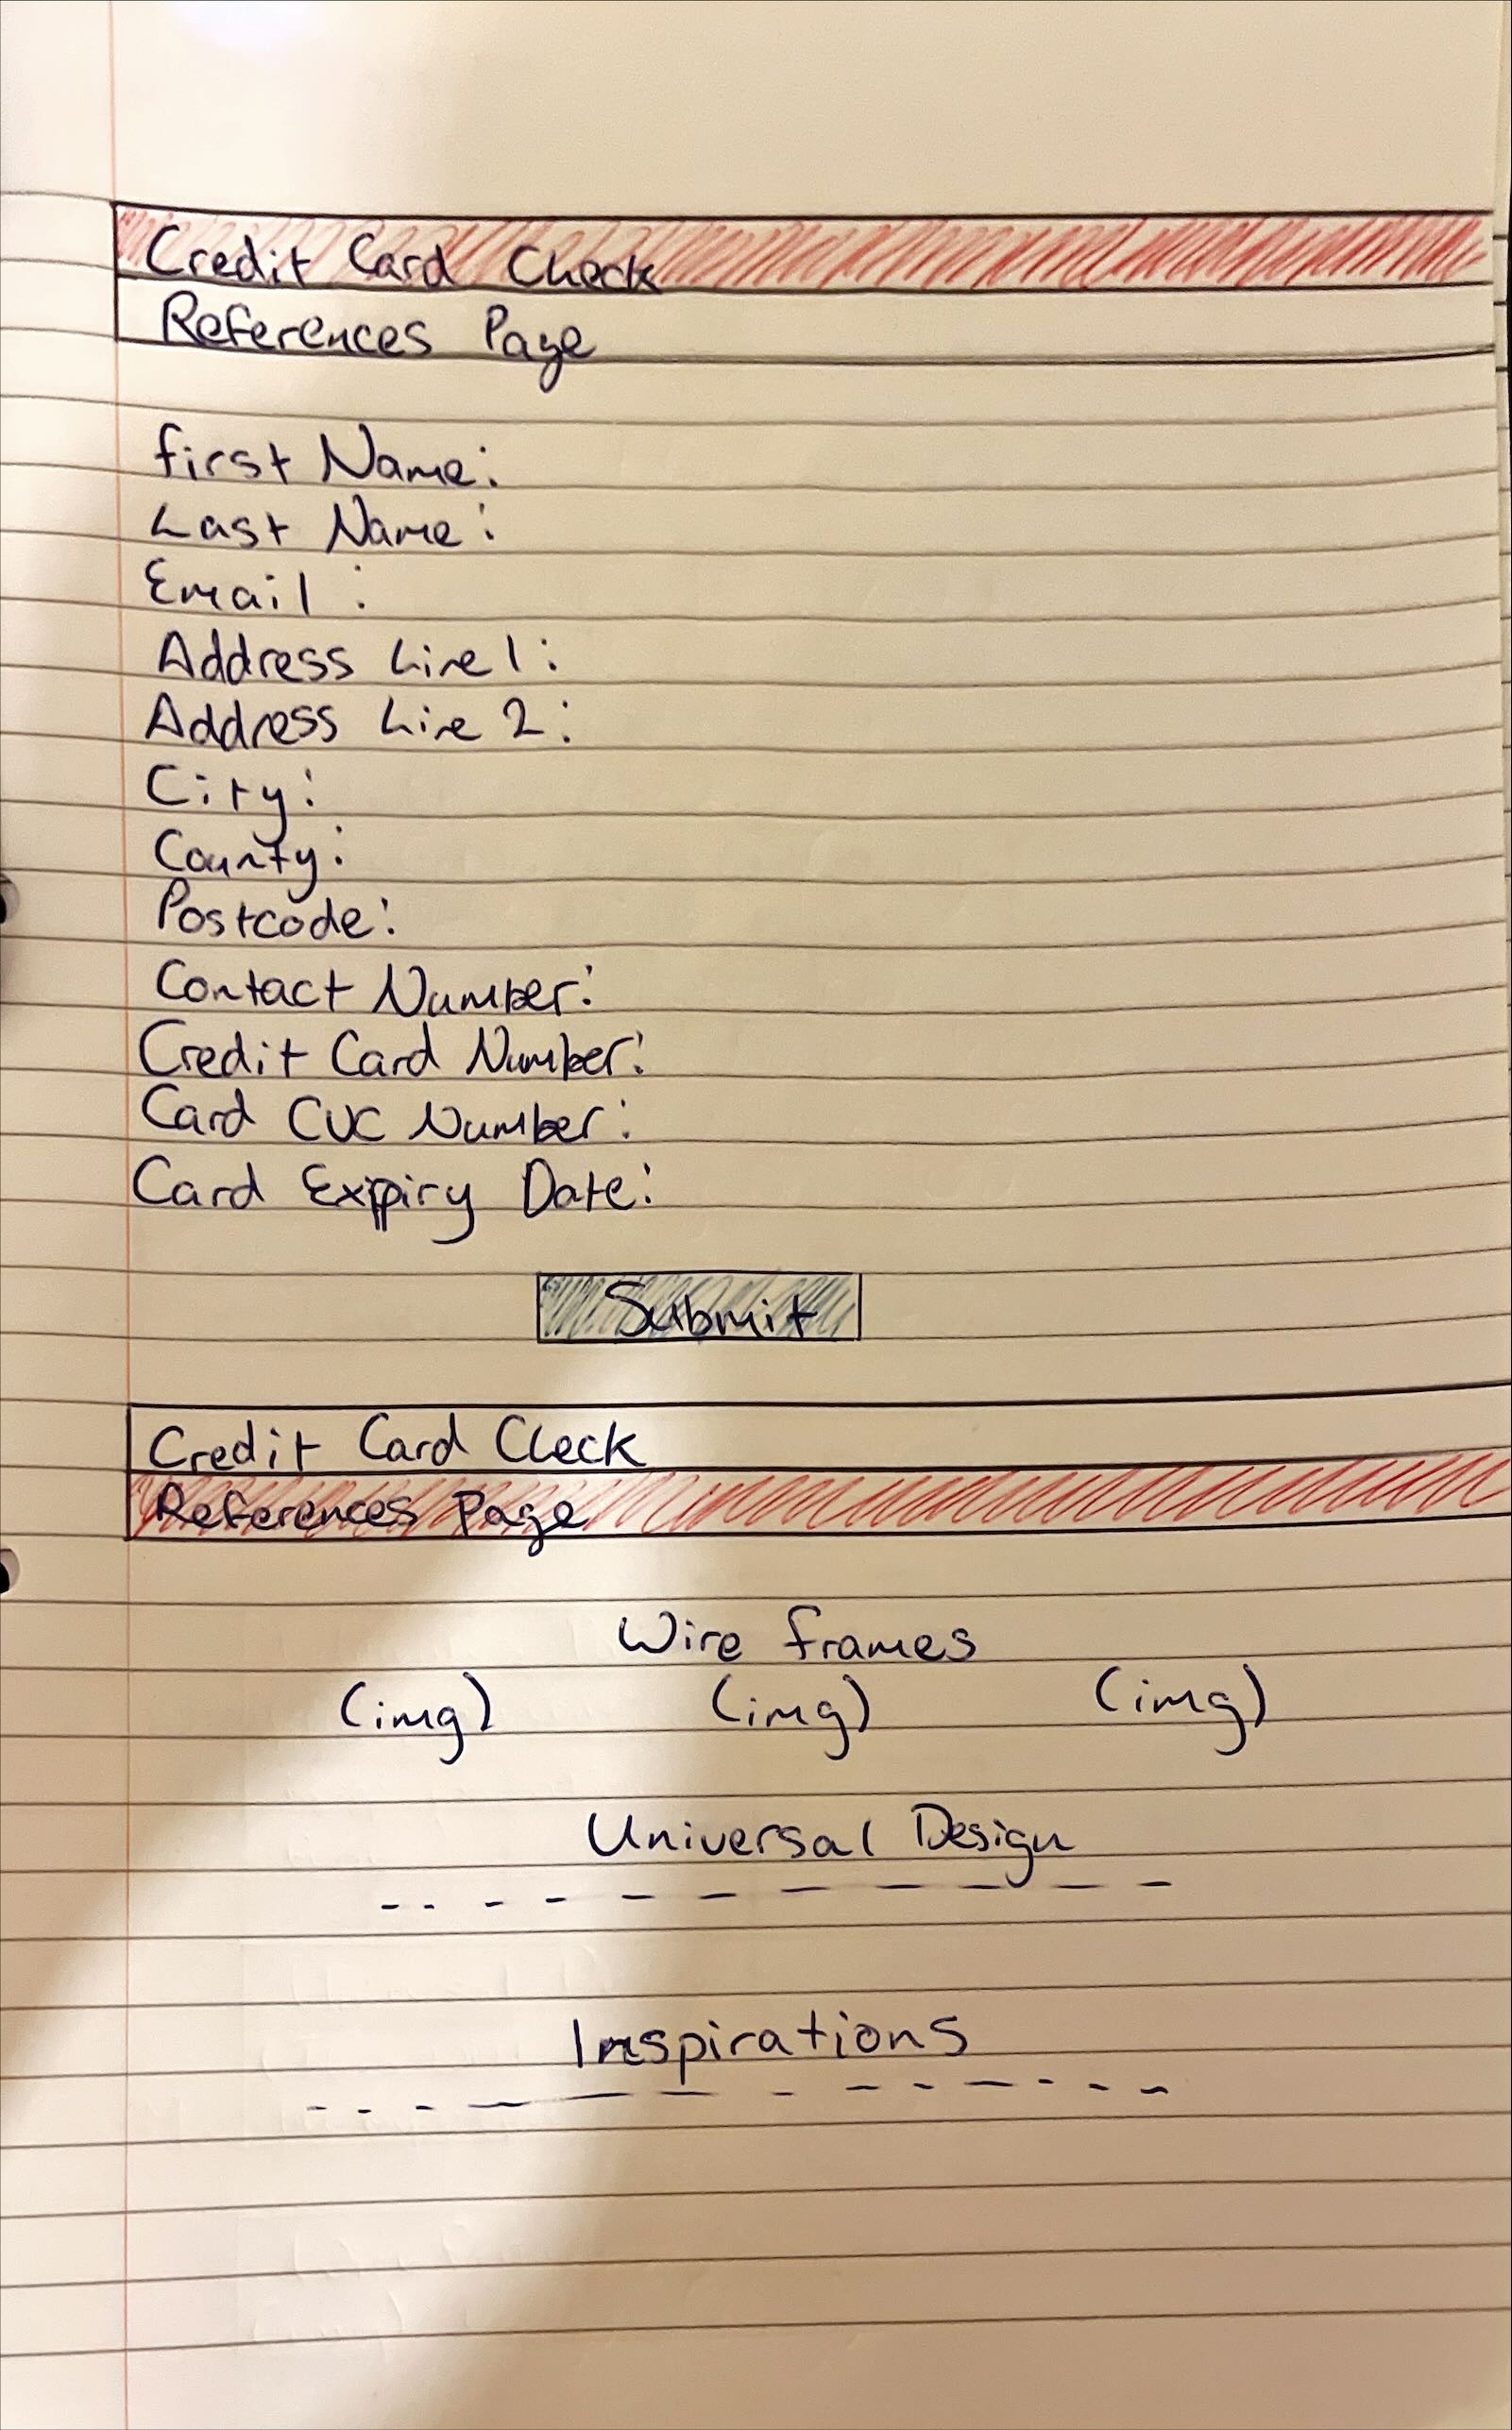 Credit Card Check
References Page
First Name:
Last Name:
Email :
Address Line 1:
Address Line 2:
City:
County:
Postcode:
Contact Number:
Credit Card Number:
Card CVC Number:
Card Expiry Date:
Submit
Credit Card Check
References Page
Wire frames
(img) (img) (img)
Universal Design
Inspirations